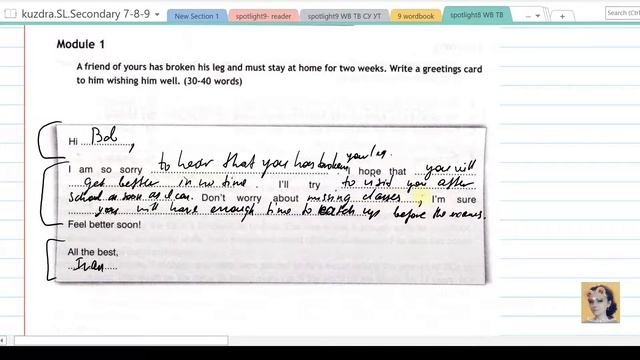 kuzdra.SL.Secondary 7-8-9
New Section 1
spotlight9- reader
spotlight9 WB TB СУ УТ
9 wordbook
spotlight8 WB TB
Search (Ctrl
Module 1
A friend of yours has broken his leg and must stay at home for two weeks. Write a greetings card
to him wishing him well. (30-40 words)
Hi Bob,
your leg.
I am so sorry to hear that you has broken I hope that you will
get better in no time. I'll try to visit you after
school as soon as I can. Don't worry about missing classes, I'm sure
you will have enough time to catch up before the exams.
Feel better soon!
All the best,
Ivan